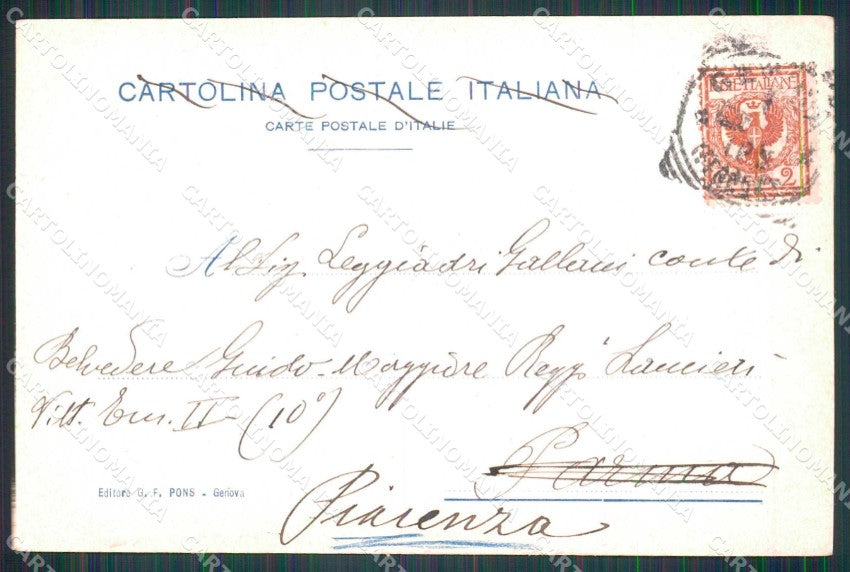 CARTOLINA POSTALE ITALIANA
CARTE POSTALE D'ITALIE
POSTE ITALIANE
2
Al Sig. Leggiadri Gallani conte di
Belvedere Guido - Maggiore Regg Lancieri
Vitt. Em. II (10°)
Parma
Piacenza
Editore G. F. PONS - Genova
CARTOLINOMANIA